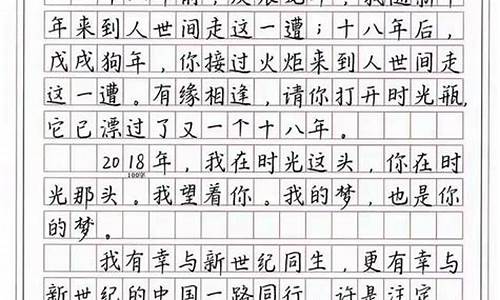 年来到人世间走这一遭；十八年后，
戊戌狗年，你接过火炬来到人世间走
这一遭。有缘相逢，请你打开时光瓶，
它已漂过了又一个十八年。
2018年，我在时光这头，你在时
100字
光那头。我望着你。我的梦，也是你
的梦。
我有幸与新世纪同生，更有幸与
新世纪的中国一路同行。许是注定